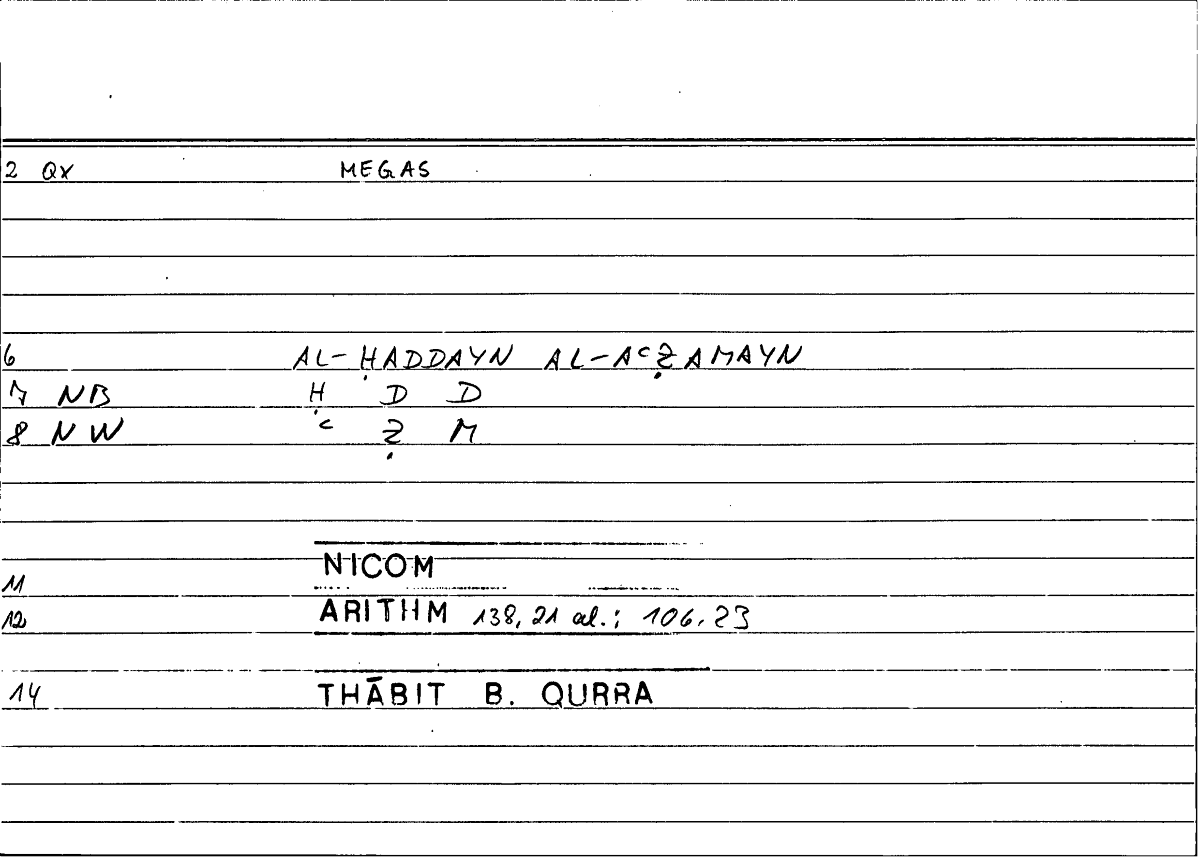 2 QX MEGAS
6 AL-ḤADDAYN AL-AᶜẒAMAYN
7 NB Ḥ D D
8 NW ᶜ Ẓ M
11 NICOM
12 ARITHM 138,21 al.; 106.23
14 THĀBIT B. QURRA